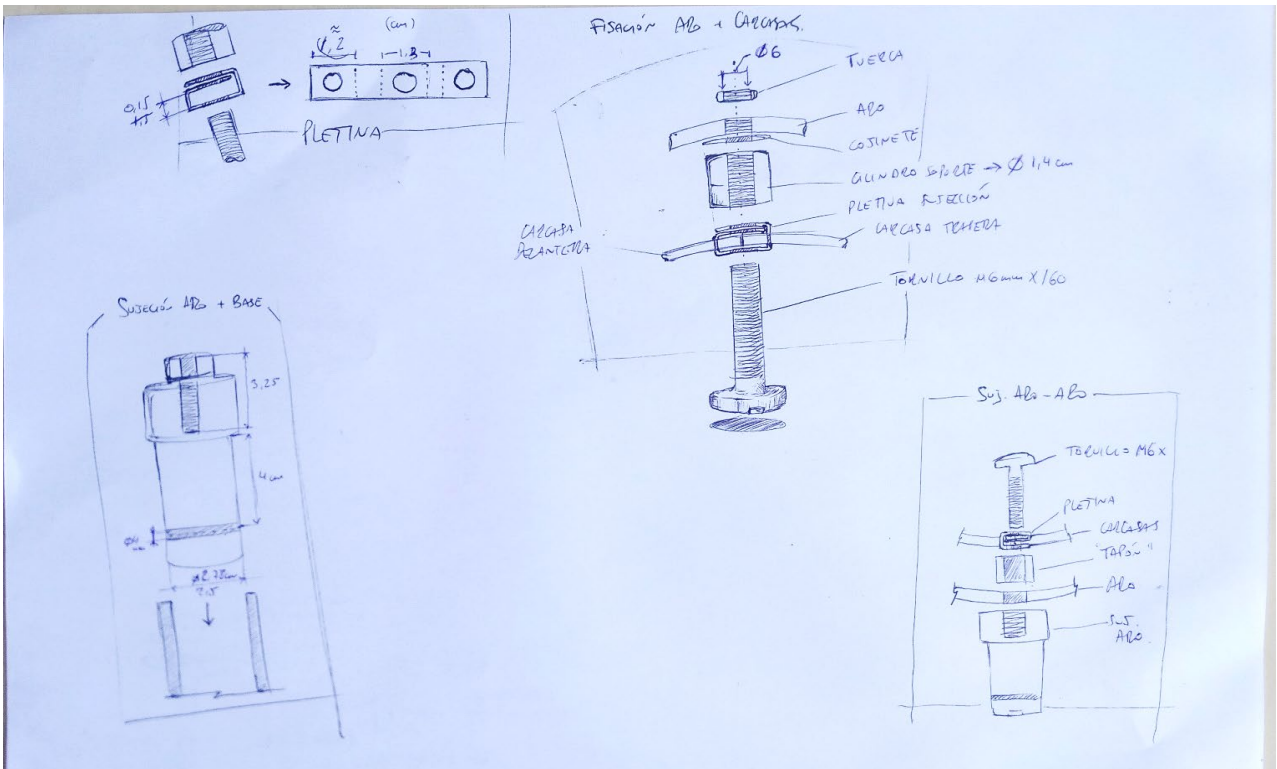 (cm)
2
1.3
0,15
PLETINA
FISACIÓN ARO + CARCASAS.
Ø6
TUERCA
ARO
COJINETE
CILINDRO SOPORTE → Ø 1,4 cm
PLETINA SUJECCIÓN
CARCASA TRASERA
CARCASA
DELANTERA
TORNILLO M6mm X/60
SUJECIÓN ARO + BASE
3,25
4 cm
2,5
SUJ. ARO - ARO
TORNILLO M6X
PLETINA
CARCASAS
"TAPÓN"
ARO
SUJ.
ARO.